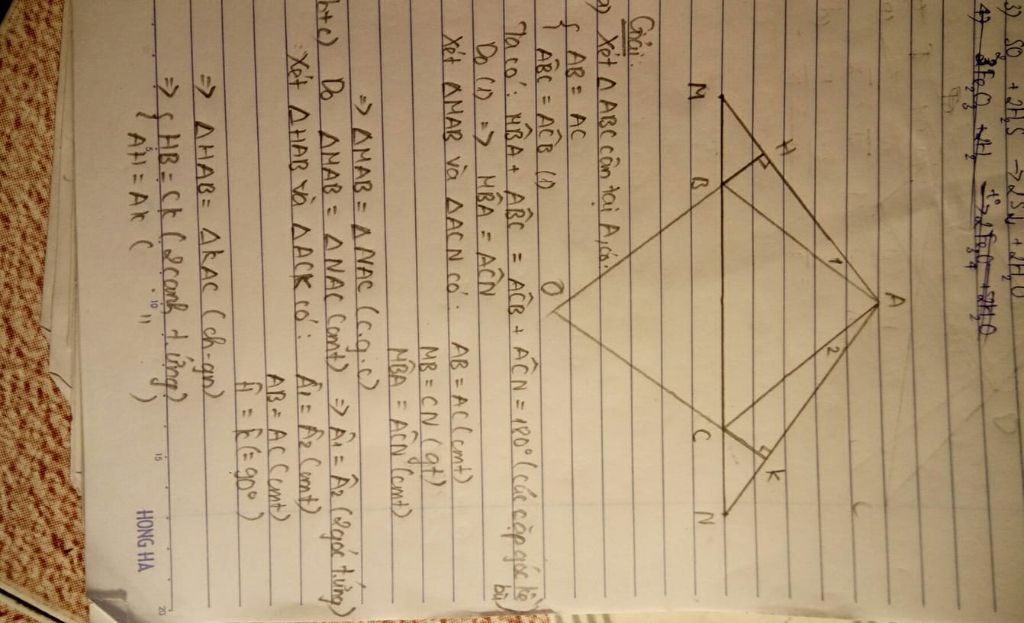 3) SO₂ + 2H₂S → 3S↓ + 2H₂O
4) 3Fe₂O₃ + H₂ –t°→ 2Fe₃O₄ + H₂O
A
1
2
H
K
M
B
C
N
O
Giải:
a) Xét △ABC cân tại A, có:
{ AB = AC
ABC = ACB (1)
Ta có: MBA + ABC = ACB + ACN = 180° (các cặp góc kề bù)
Do (1) => MBA = ACN
Xét △MAB và △ACN có: AB = AC (cmt)
MB = CN (gt)
MBA = ACN (cmt)
=> △MAB = △NAC (c.g.c)
b+c) Do △MAB = △NAC (cmt) => Â₁ = Â₂ (2 góc t.ứng)
Xét △HAB và △ACK có: Â₁ = Â₂ (cmt)
AB = AC (cmt)
Ĥ = K̂ (= 90°)
=> △HAB = △KAC (ch-gn)
=> { HB = CK (2 cạnh t.ứng)
AH = AK ( " )
10
15
20
HONG HA